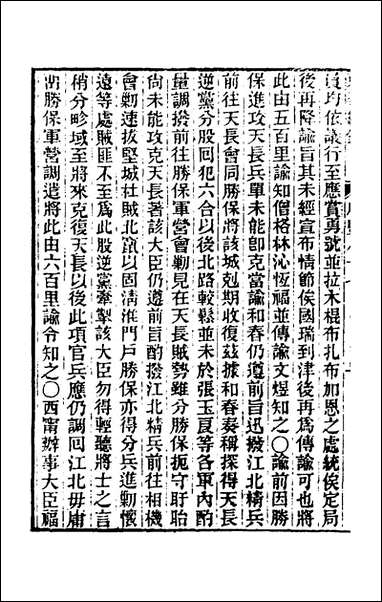 員均依議行至應賞勇號並拉木棍布扎布加恩之處統俟定局
後再降諭旨其未經宣布情節俟國瑞到津後再爲傳諭可也將
此由五百里諭知僧格林沁恆福並傳諭文煜知之〇諭前因勝
保進攻天長兵單未能卽克當諭和春仍遵前旨迅撥江北精兵
前往天長會同勝保將該城剋期收復茲據和春奏稱探得天長
逆黨分股回犯六合以後北路較鬆並未於張玉良等各軍內酌
量調撥前往勝保軍營會勦見在天長賊勢雖分勝保扼守盱眙
尚未能攻克天長著該大臣仍遵前旨酌撥江北精兵前往相機
會勦速拔堅城杜賊北竄以固清淮門戶勝保亦得分兵進勦懷
遠等處賊匪不至爲此股逆黨牽掣該大臣勿得輕聽將士之言
稍分畛域至將來克復天長以後此項官兵應仍調回江北毋庸
留勝保軍營調遣將此由六百里諭令知之〇西甯辦事大臣福